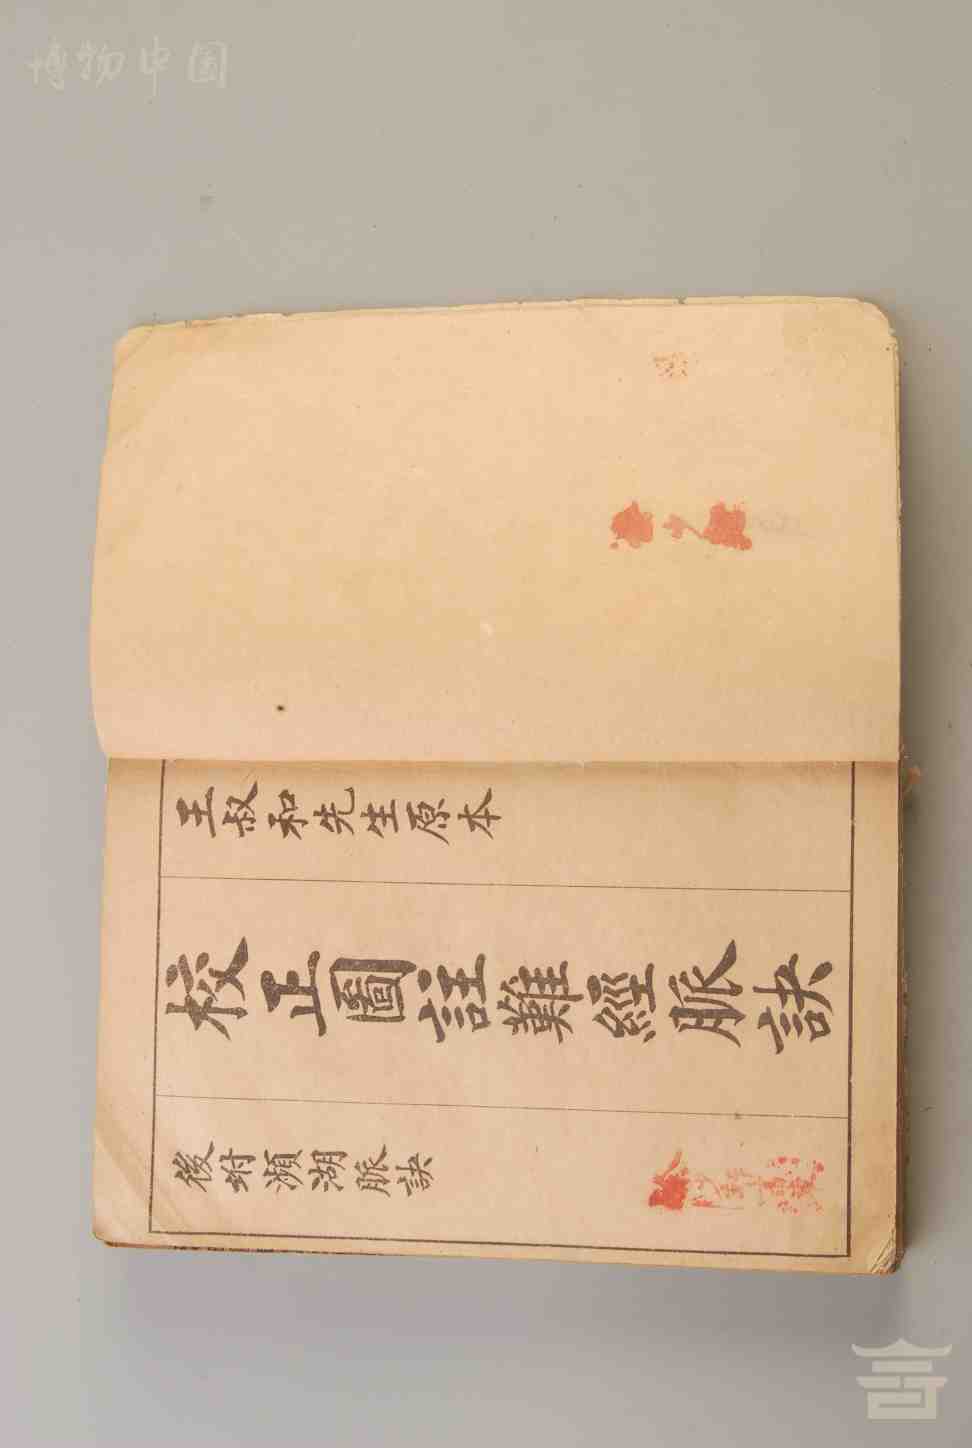 博物中国
王叔和先生原本
校正圖註難經脈訣
後坿瀕湖脈訣